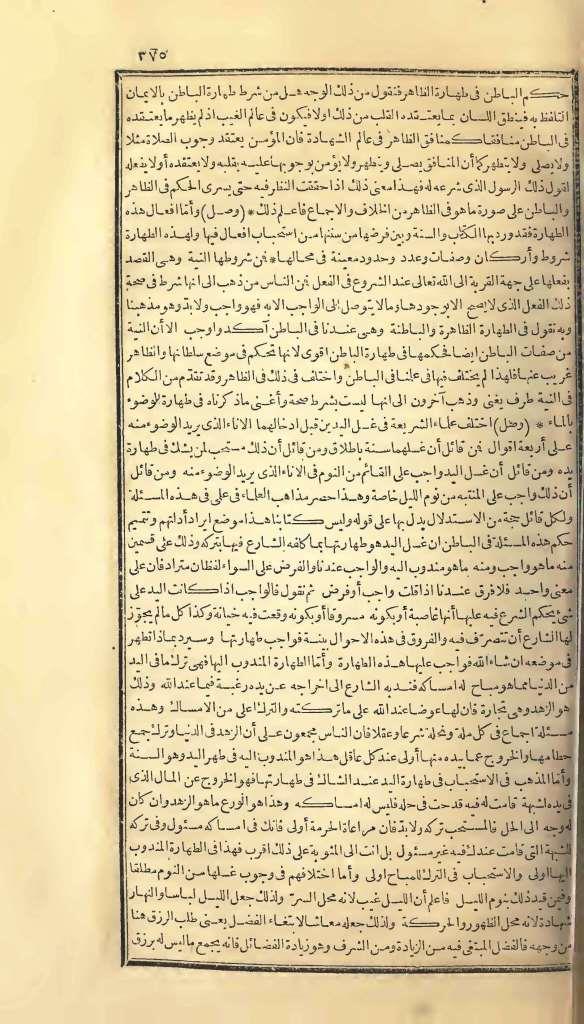 ٣٧٥
حكم الباطن فى طهارة الظاهر فنقول من ذلك الوجه هل من شرط طهارة الباطن بالايمان
التلفظ به فينطق اللسان بما يعتقده القلب من ذلك أولا فيكون فى عالم الغيب اذ لم يظهر ما يعتقده
فى الباطن منافقا كمنافق الظاهر فى عالم الشهادة فان المؤمن يعتقد وجوب الصلاة مثلا
ولا يصلى ولا يتطهر كما أن المنافق يصلى ويتطهر ولا يؤمن بوجوبها عليه بقلبه ولا يعتقده أو لا يفعله
لقول ذلك الرسول الذى شرعه له فهذا معنى ذلك اذا حققت النظر فيه حتى يسرى الحكم فى الظاهر
والباطن على صورة ما هو فى الظاهر من الخلاف والاجماع فاعلم ذلك * (وصل) وأما افعال هذه
الطهارة فقد ورد بها الكتاب والسنة وبين فرضها من سننها من استحباب افعال فيها ولهذه الطهارة
شروط وأركان وصفات وعدد وحدود معينة فى محالها * فمن شروطها النية وهى القصد
بفعلها على جهة القربة الى الله تعالى عند الشروع فى الفعل فمن الناس من ذهب الى انها شرط فى صحة
ذلك الفعل الذى لا يصح الا بوجودها وما لا يتوصل الى الواجب الا به فهو واجب ولا بد وهو مذهبنا
وبه نقول فى الطهارة الظاهرة والباطنة وهى عندنا فى الباطن آكد وأوجب الا أن النية
من صفات الباطن ايضا فحكمها فى طهارة الباطن اقوى لانها تحكم فى موضع سلطانها والظاهر
غريب عنها فلهذا لم يختلف فيها فى علمنا فى الباطن واختلف فى ذلك فى الظاهر وقد تقدم من الكلام
فى النية طرف يغنى وذهب آخرون الى انها ليست بشرط صحة وأعنى ما ذكرناه فى طهارة الوضوء
بالماء * (وصل) اختلف علماء الشريعة فى غسل اليدين قبل ادخالهما الاناء الذى يريد الوضوء منه
على أربعة اقوال فمن قائل أن غسلهما سنة باطلاق ومن قائل أن ذلك مستحب لمن يشك فى طهارة
يده ومن قائل أن غسل اليد واجب على القائم من النوم فى الاناء الذى يريد الوضوء منه ومن قائل
أن ذلك واجب على المنتبه من نوم الليل خاصة وهذا حصر مذاهب العلماء فى علمى فى هذه المسئلة
ولكل قائل حجة من الاستدلال يدل بها على قوله وليس كتابنا هذا موضع ايراد أدلتهم وتتميم
حكم هذه المسئلة فى الباطن ان غسل اليد هو طهارتها بما كلفه الشارع فيها بتركه وذلك على قسمين
منه ما هو واجب ومنه ما هو مندوب اليه والواجب عندنا والفرض على السواء لفظان مترادفان على
معنى واحد فلا فرق عندنا اذا قلت واجب أو فرض ثم نقول فالواجب اذا كانت اليد على
شئ يحكم الشرع فيه عليها أنها غاصبة أو بكونه مسروقا أو بكونه وقعت فيه خيانة وكذا كل ما لم يجوّز
لها الشارع أن تتصرف فيه والفروق فى هذه الاحوال بينة فواجب طهارتها وسيرد بماذا تطهر
فى موضعه ان شاء الله فواجب عليها هذه الطهارة وأما الطهارة المندوب اليها فهى ترك ما فى اليد
من الدنيا مما هو مباح له امساكه فندبه الشارع الى اخراجه عن يده رغبة فيما عند الله وذلك
هو الزهد وهى تجارة فان لها عوضا عند الله على ما تركته والترك اعلى من الامساك وهذه
مسئلة اجماع فى كل ملة ونحلة شرعا وعقلا فان الناس مجمعون على أن الزهد فى الدنيا وترك جمع
حطامها والخروج عما بيده منها أولى عند كل عاقل هذا هو المندوب اليه فى طهر اليد وهو السنة
وأما المذهب فى الاستحباب فى طهارة اليد عند الشك فى طهارتها فهو الخروج عن المال الذى
فى يده لشبهة قامت له فيه قدحت فى حله فليس له امساكه وهذا هو الورع ما هو الزهد وان كان
له وجه الى الحل فالمستحب تركه ولا بد فان مراعاة الحرمة أولى فانك فى امساكه مسئول وفى تركه
للشبهة التى قامت عندك فيه غير مسئول بل انت الى المثوبة على ذلك اقرب فهذا فى الطهارة المندوب
اليها اولى والاستحباب فى الترك للمباح اولى وأما اختلافهم فى وجوب غسلها من النوم مطلقا
وفيمن قيد ذلك بنوم الليل فاعلم أن الليل غيب لانه محل الستر ولذلك جعل الليل لباسا والنهار
شهادة لانه محل الظهور والحركة ولذلك جعله معاشا لابتغاء الفضل يعنى طلب الرزق هنا
من وجهه فالفضل المبتغى فيه من الزيادة ومن الشرف وهو زيادة الفضائل فانه يجمع ما ليس له برزق